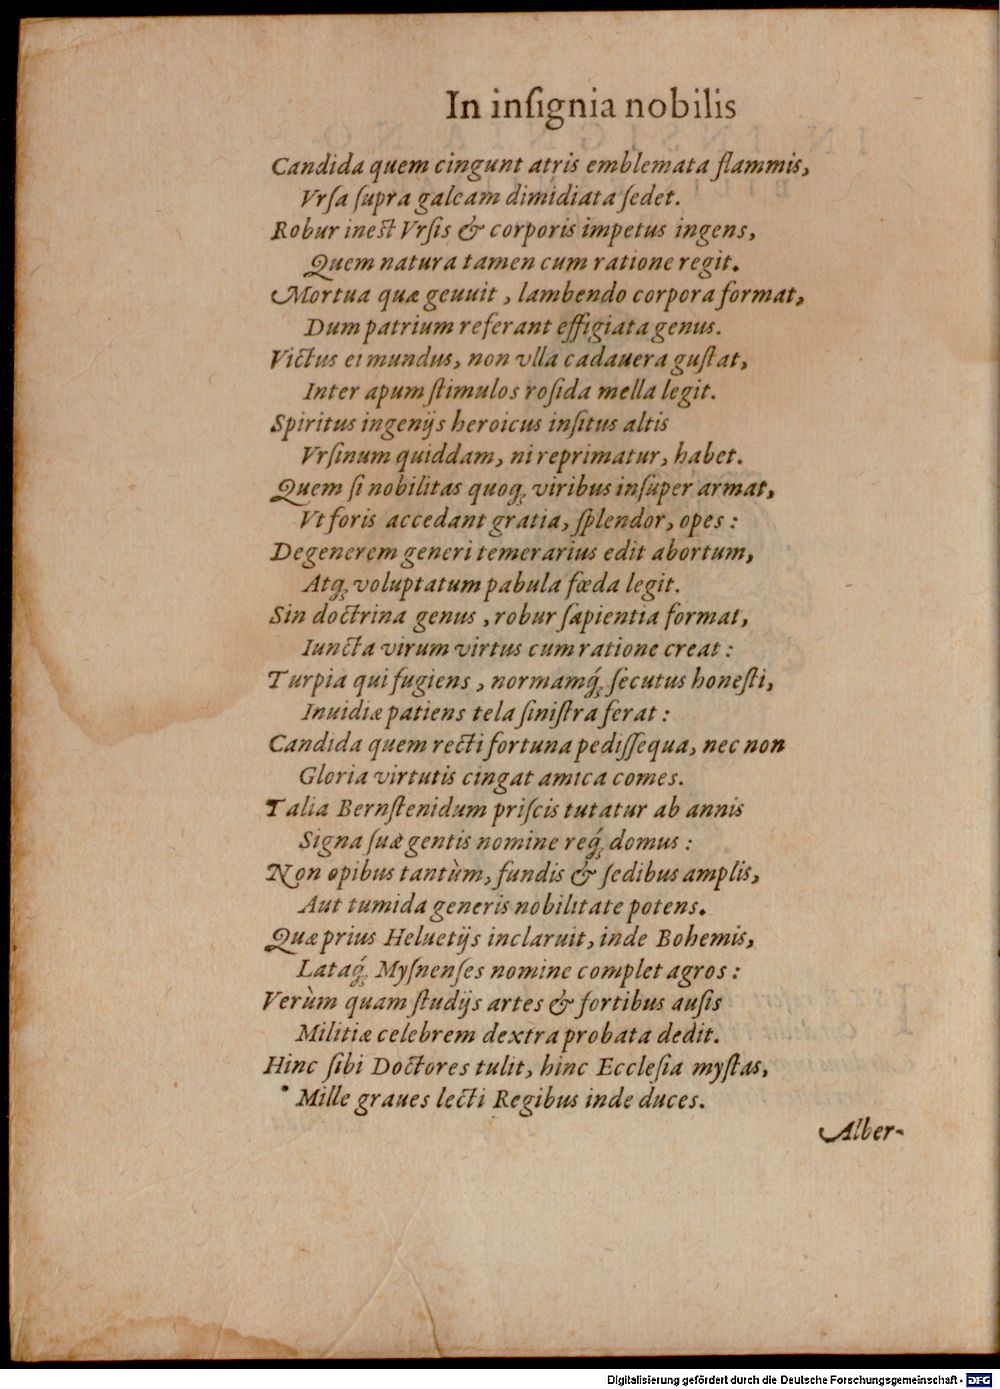 In inſignia nobilis
Candida quem cingunt atris emblemata flammis,
Vrſa ſupra galeam dimidiata ſedet.
Robur ineſt Vrſis & corporis impetus ingens,
Quem natura tamen cum ratione regit.
Mortua quæ geuuit, lambendo corpora format,
Dum patrium referant effigiata genus.
Victus ei mundus, non vlla cadauera guſtat,
Inter apum ſtimulos roſida mella legit.
Spiritus ingenijs heroicus inſitus altis
Vrſinum quiddam, ni reprimatur, habet.
Quem ſi nobilitas quoq; viribus inſuper armat,
Vt foris accedant gratia, ſplendor, opes:
Degenerem generi temerarius edit abortum,
Atq; voluptatum pabula fœda legit.
Sin doctrina genus, robur ſapientia format,
Iuncta virum virtus cum ratione creat:
Turpia qui fugiens, normamq́; ſecutus honeſti,
Inuidiæ patiens tela ſiniſtra ferat:
Candida quem recti fortuna pediſſequa, nec non
Gloria virtutis cingat amica comes.
Talia Bernſtenidum priſcis tutatur ab annis
Signa ſuæ gentis nomine req́; domus:
Non opibus tantùm, fundis & ſedibus amplis,
Aut tumida generis nobilitate potens.
Quæ prius Heluetijs inclaruit, inde Bohemis,
Lataq́; Myſnenſes nomine complet agros:
Verùm quam ſtudijs artes & fortibus auſis
Militiæ celebrem dextra probata dedit.
Hinc ſibi Doctores tulit, hinc Eccleſia myſtas,
Mille graues lecti Regibus inde duces.
Alber-
Digitalisierung gefördert durch die Deutsche Forschungsgemeinschaft - DFG